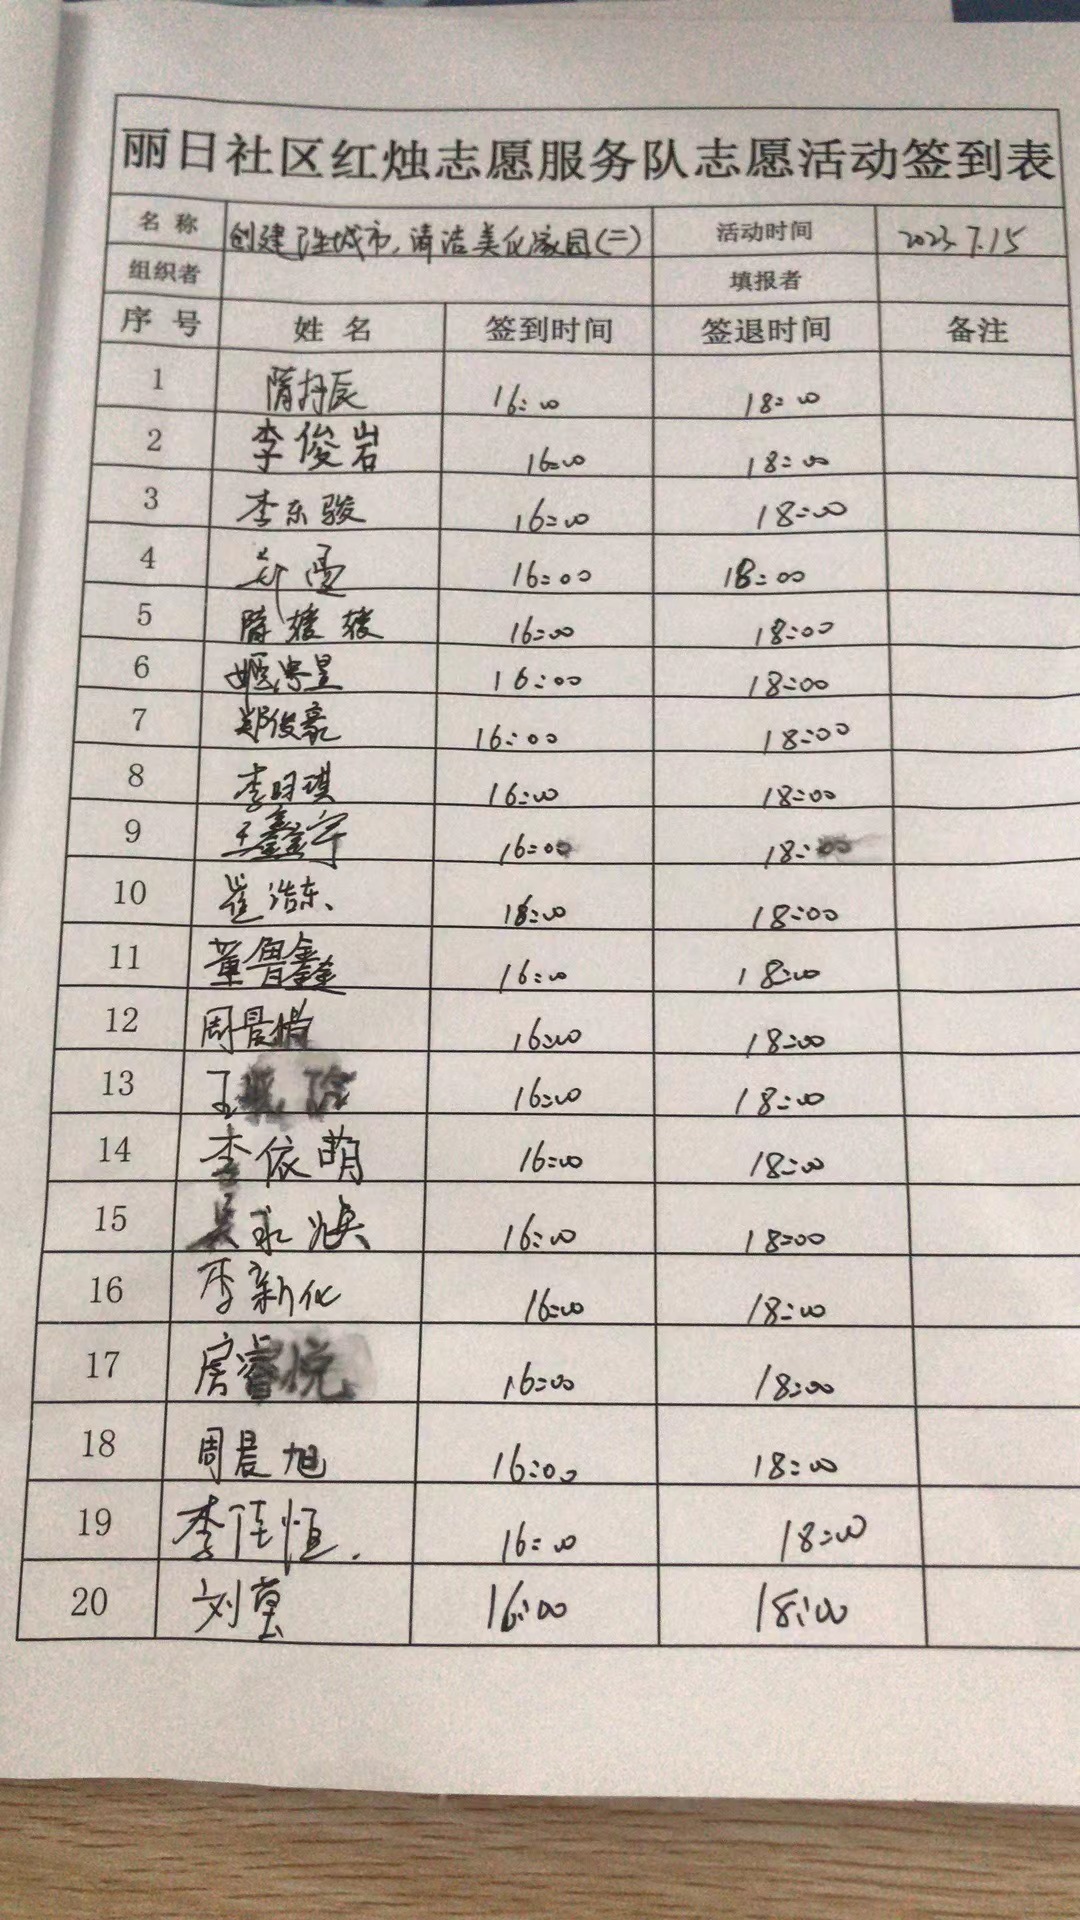 丽日社区红烛志愿服务队志愿活动签到表
名称 创建卫生城市,清洁美化家园(二) 活动时间 2023.7.15
组织者 填报者
序号 姓名 签到时间 签退时间 备注
1 隋抒辰 16:00 18:00
2 李俊岩 16:00 18:00
3 李东骏 16:00 18:00
4 16:00 18:00
5 隋媛媛 16:00 18:00
6 16:00 18:00
7 郑俊豪 16:00 18:00
8 李时琪 16:00 18:00
9 王鑫宇 16:00 18:00
10 崔浩东 18:00 18:00
11 董鲁鑫 16:00 18:00
12 周晨 16:00 18:00
13 王 16:00 18:00
14 李依萌 16:00 18:00
15 吴永焕 16:00 18:00
16 李新化 16:00 18:00
17 房睿悦 16:00 18:00
18 周晨旭 16:00 18:00
19 李佳恒 16:00 18:00
20 刘莹 16:00 18:00